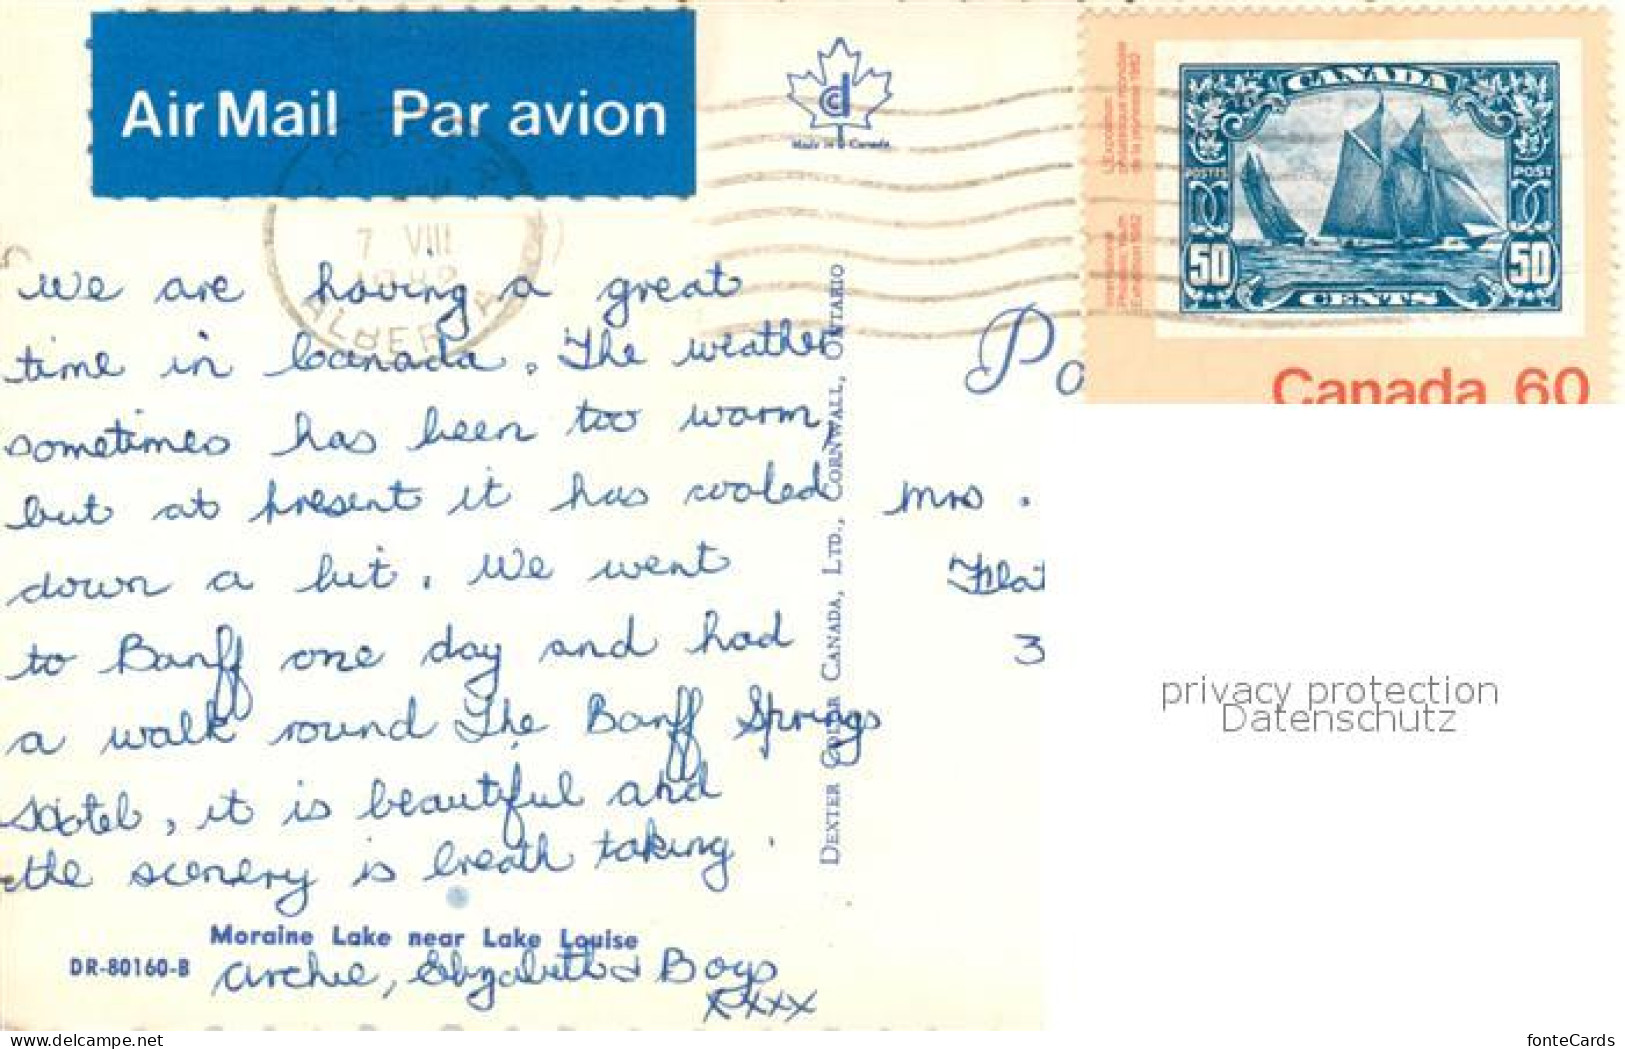 Air Mail Par avion
Made in Canada
L'Exposition
philatélique mondiale
de la jeunesse 1982
International
Philatelic Youth
Exhibition 1982
CANADA
POSTES POST
50 50
CENTS
Canada 60
7 VIII
ALBERTA
Po
We are having a great
time in Canada. The weather
sometimes has been too warm,
but at present it has cooled
down a bit. We went
to Banff one day and had
a walk round The Banff Springs
Hotel, it is beautiful and
the scenery is breath taking.
Archie, Elizabeth & Boys
xxxx
Moraine Lake near Lake Louise
DR-80160-B
DEXTER COLOR CANADA, LTD., CORNWALL, ONTARIO
Mrs.
Flat
3
privacy protection
Datenschutz
www.delcampe.net
fonteCards